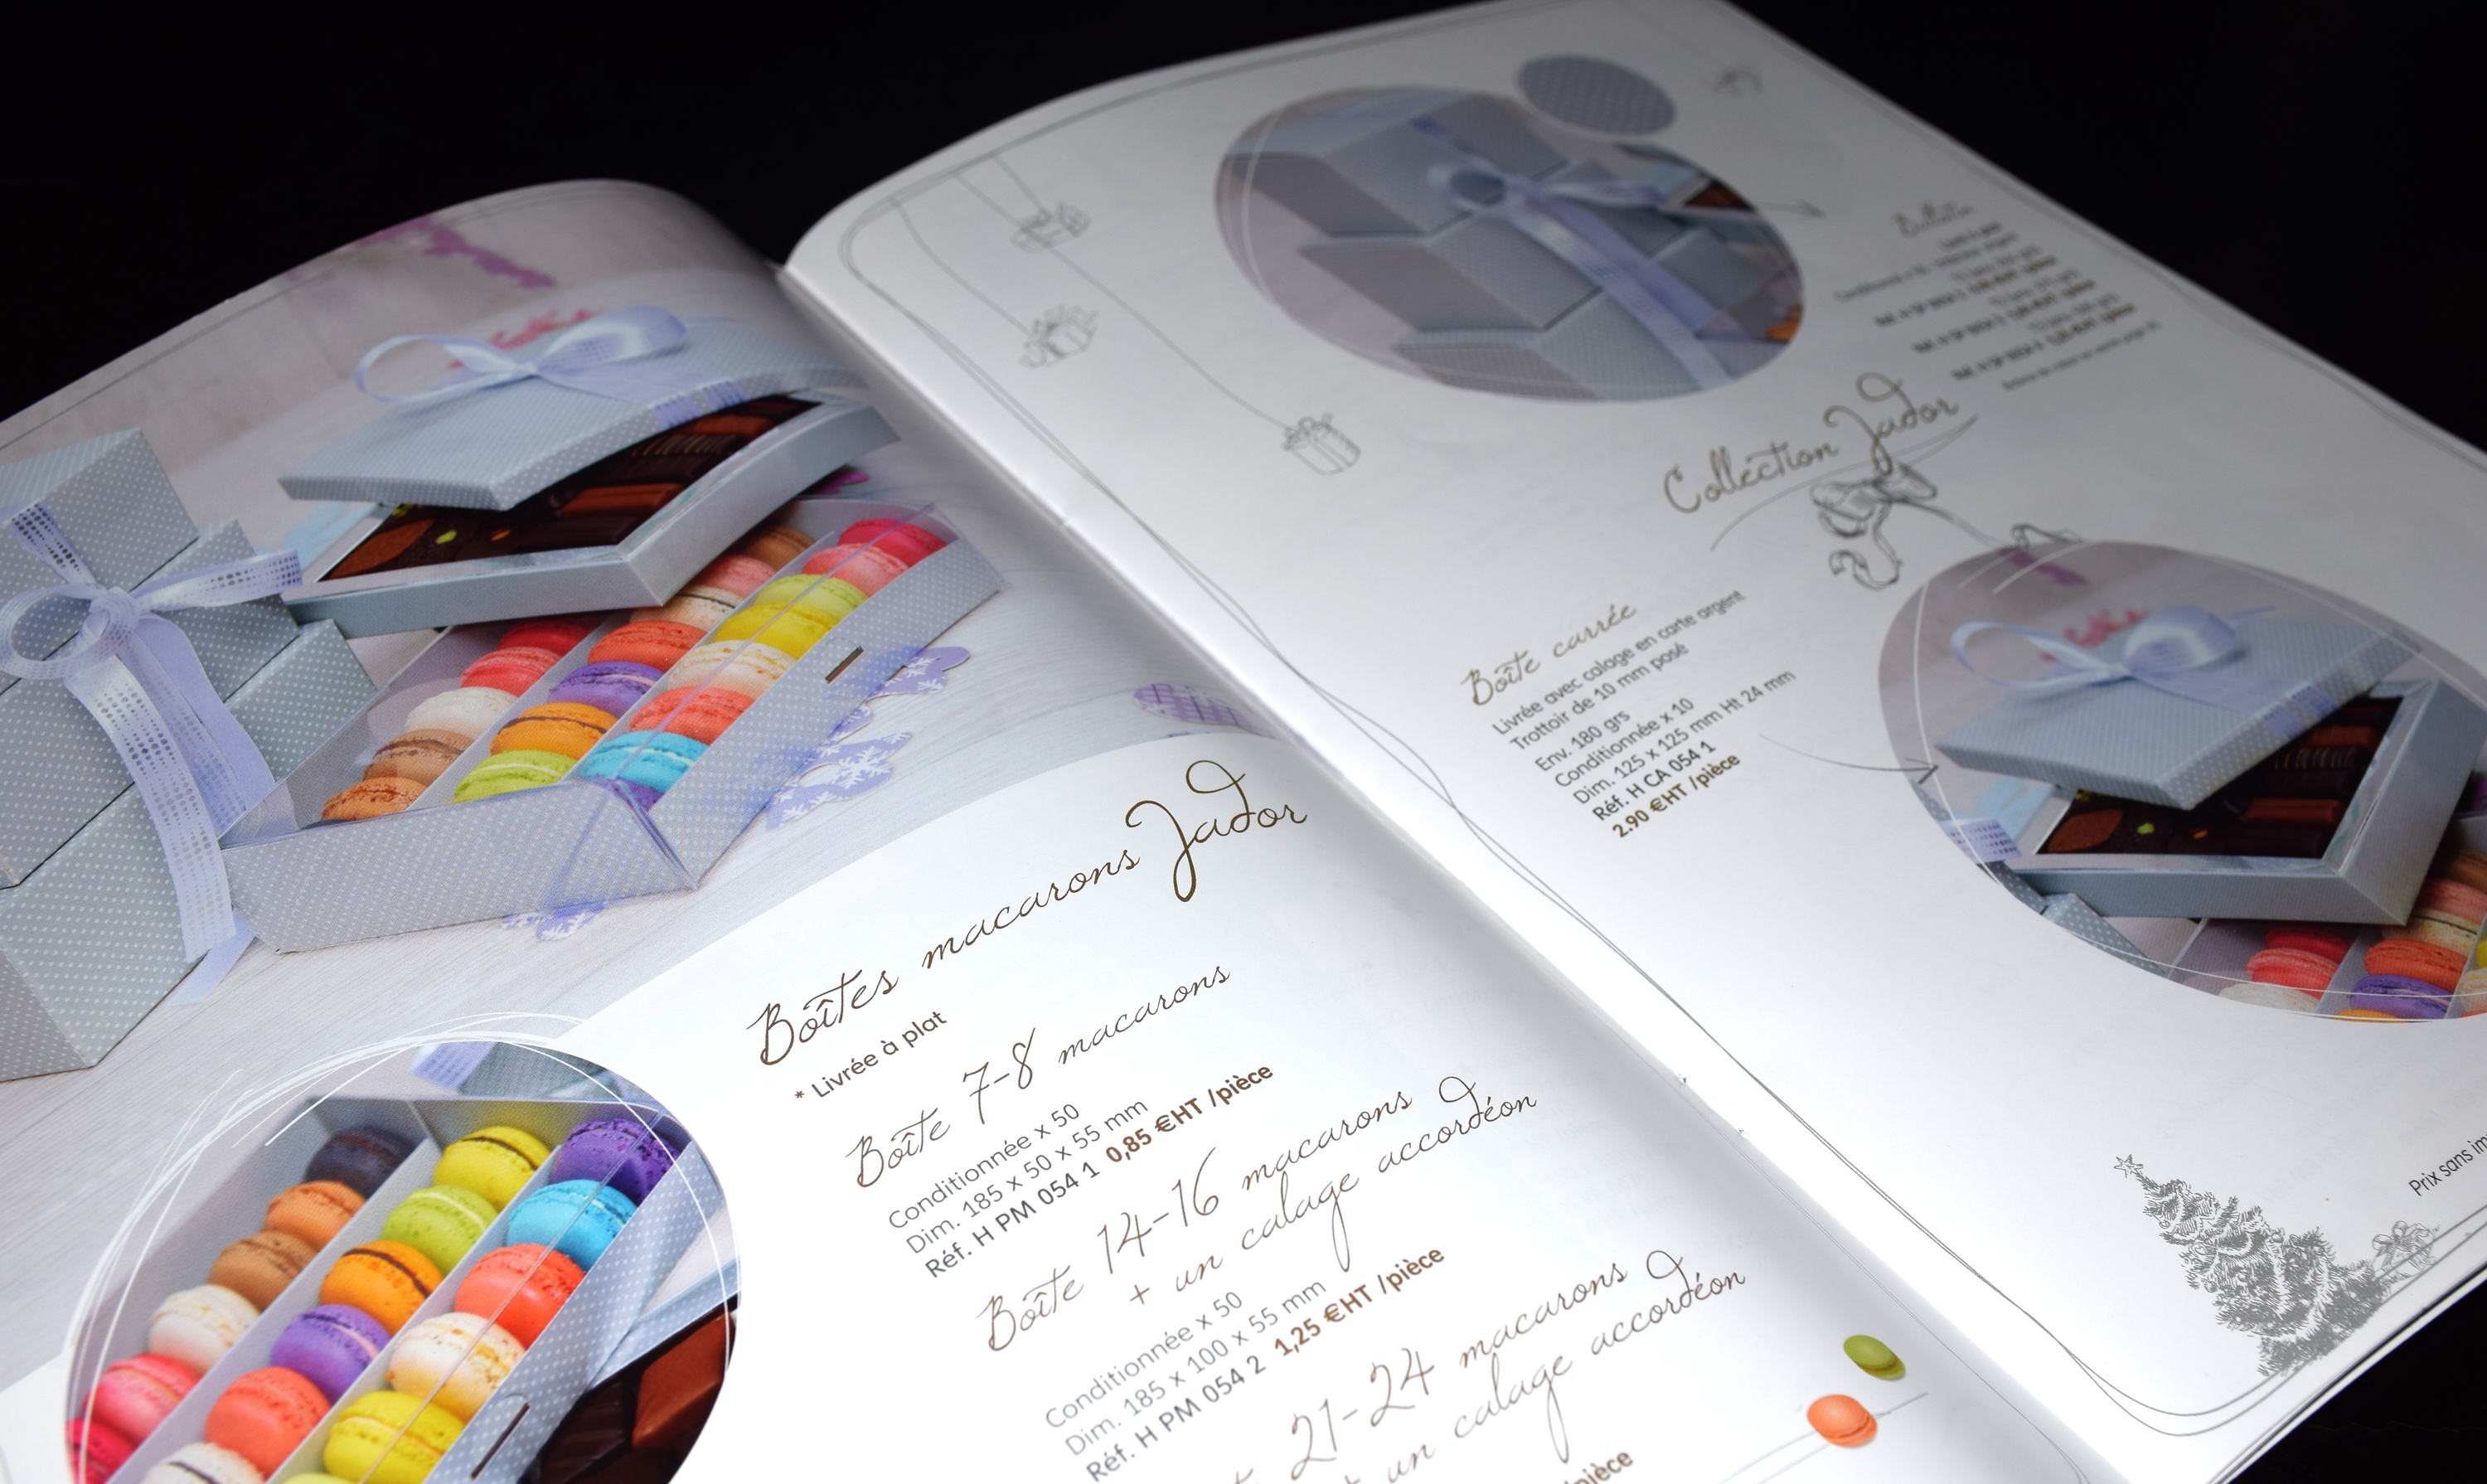 Boîtes macarons Jador
* Livrée à plat
Boîte 7-8 macarons
Conditionnée x 50
Dim. 185 x 50 x 55 mm
Réf. H PM 054 1 0,85 €HT /pièce
Boîte 14-16 macarons
+ un calage accordéon
Conditionnée x 50
Dim. 185 x 100 x 55 mm
Réf. H PM 054 2 1,25 €HT /pièce
21-24 macarons
un calage accordéon
Collection Jador
Boîte carrée
Livrée avec calage en carte argent
Trottoir de 10 mm posé
Env. 180 grs
Conditionnée x 10
Dim. 125 x 125 mm Ht 24 mm
Réf. H CA 054 1
2.90 €HT /pièce
Prix sans